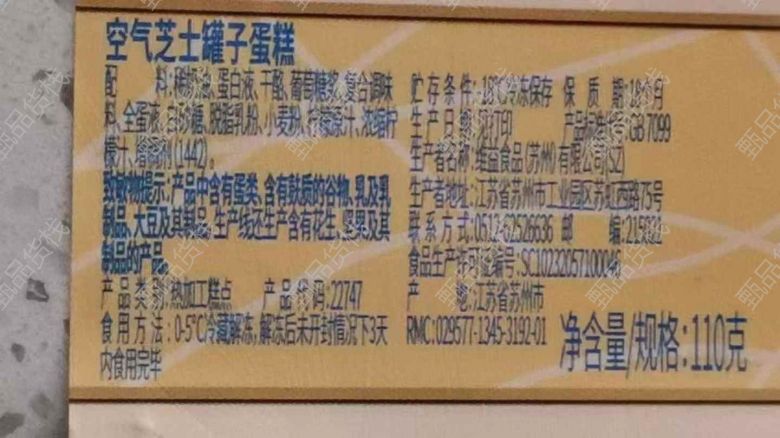 空气芝士罐子蛋糕
配 料:稀奶油、蛋白液、干酪、葡萄糖浆、复合调味
料、全蛋液、白砂糖、脱脂乳粉、小麦粉、柠檬原汁、浓缩柠
檬汁、增稠剂(1442)。
致敏物提示:产品中含有蛋类、含有麸质的谷物、乳及乳
制品、大豆及其制品。生产线还生产含有花生、坚果及其
制品的产品。
产品类别:热加工糕点 产品代码:22747
食用方法:0-5℃冷藏解冻,解冻后未开封情况下3天
内食用完毕
贮存条件:-18℃冷冻保存 保 质 期:18个月
生产日期:见打印 产品标准代号:GB 7099
生产者名称:维益食品(苏州)有限公司(SZ)
生产者地址:江苏省苏州市工业园区苏虹西路75号
联系方式:0512-62526636 邮 编:215021
食品生产许可证编号:SC10232057100046
产 地:江苏省苏州市
RMC:029577-1345-3192-01
净含量/规格:110克
甄品货栈